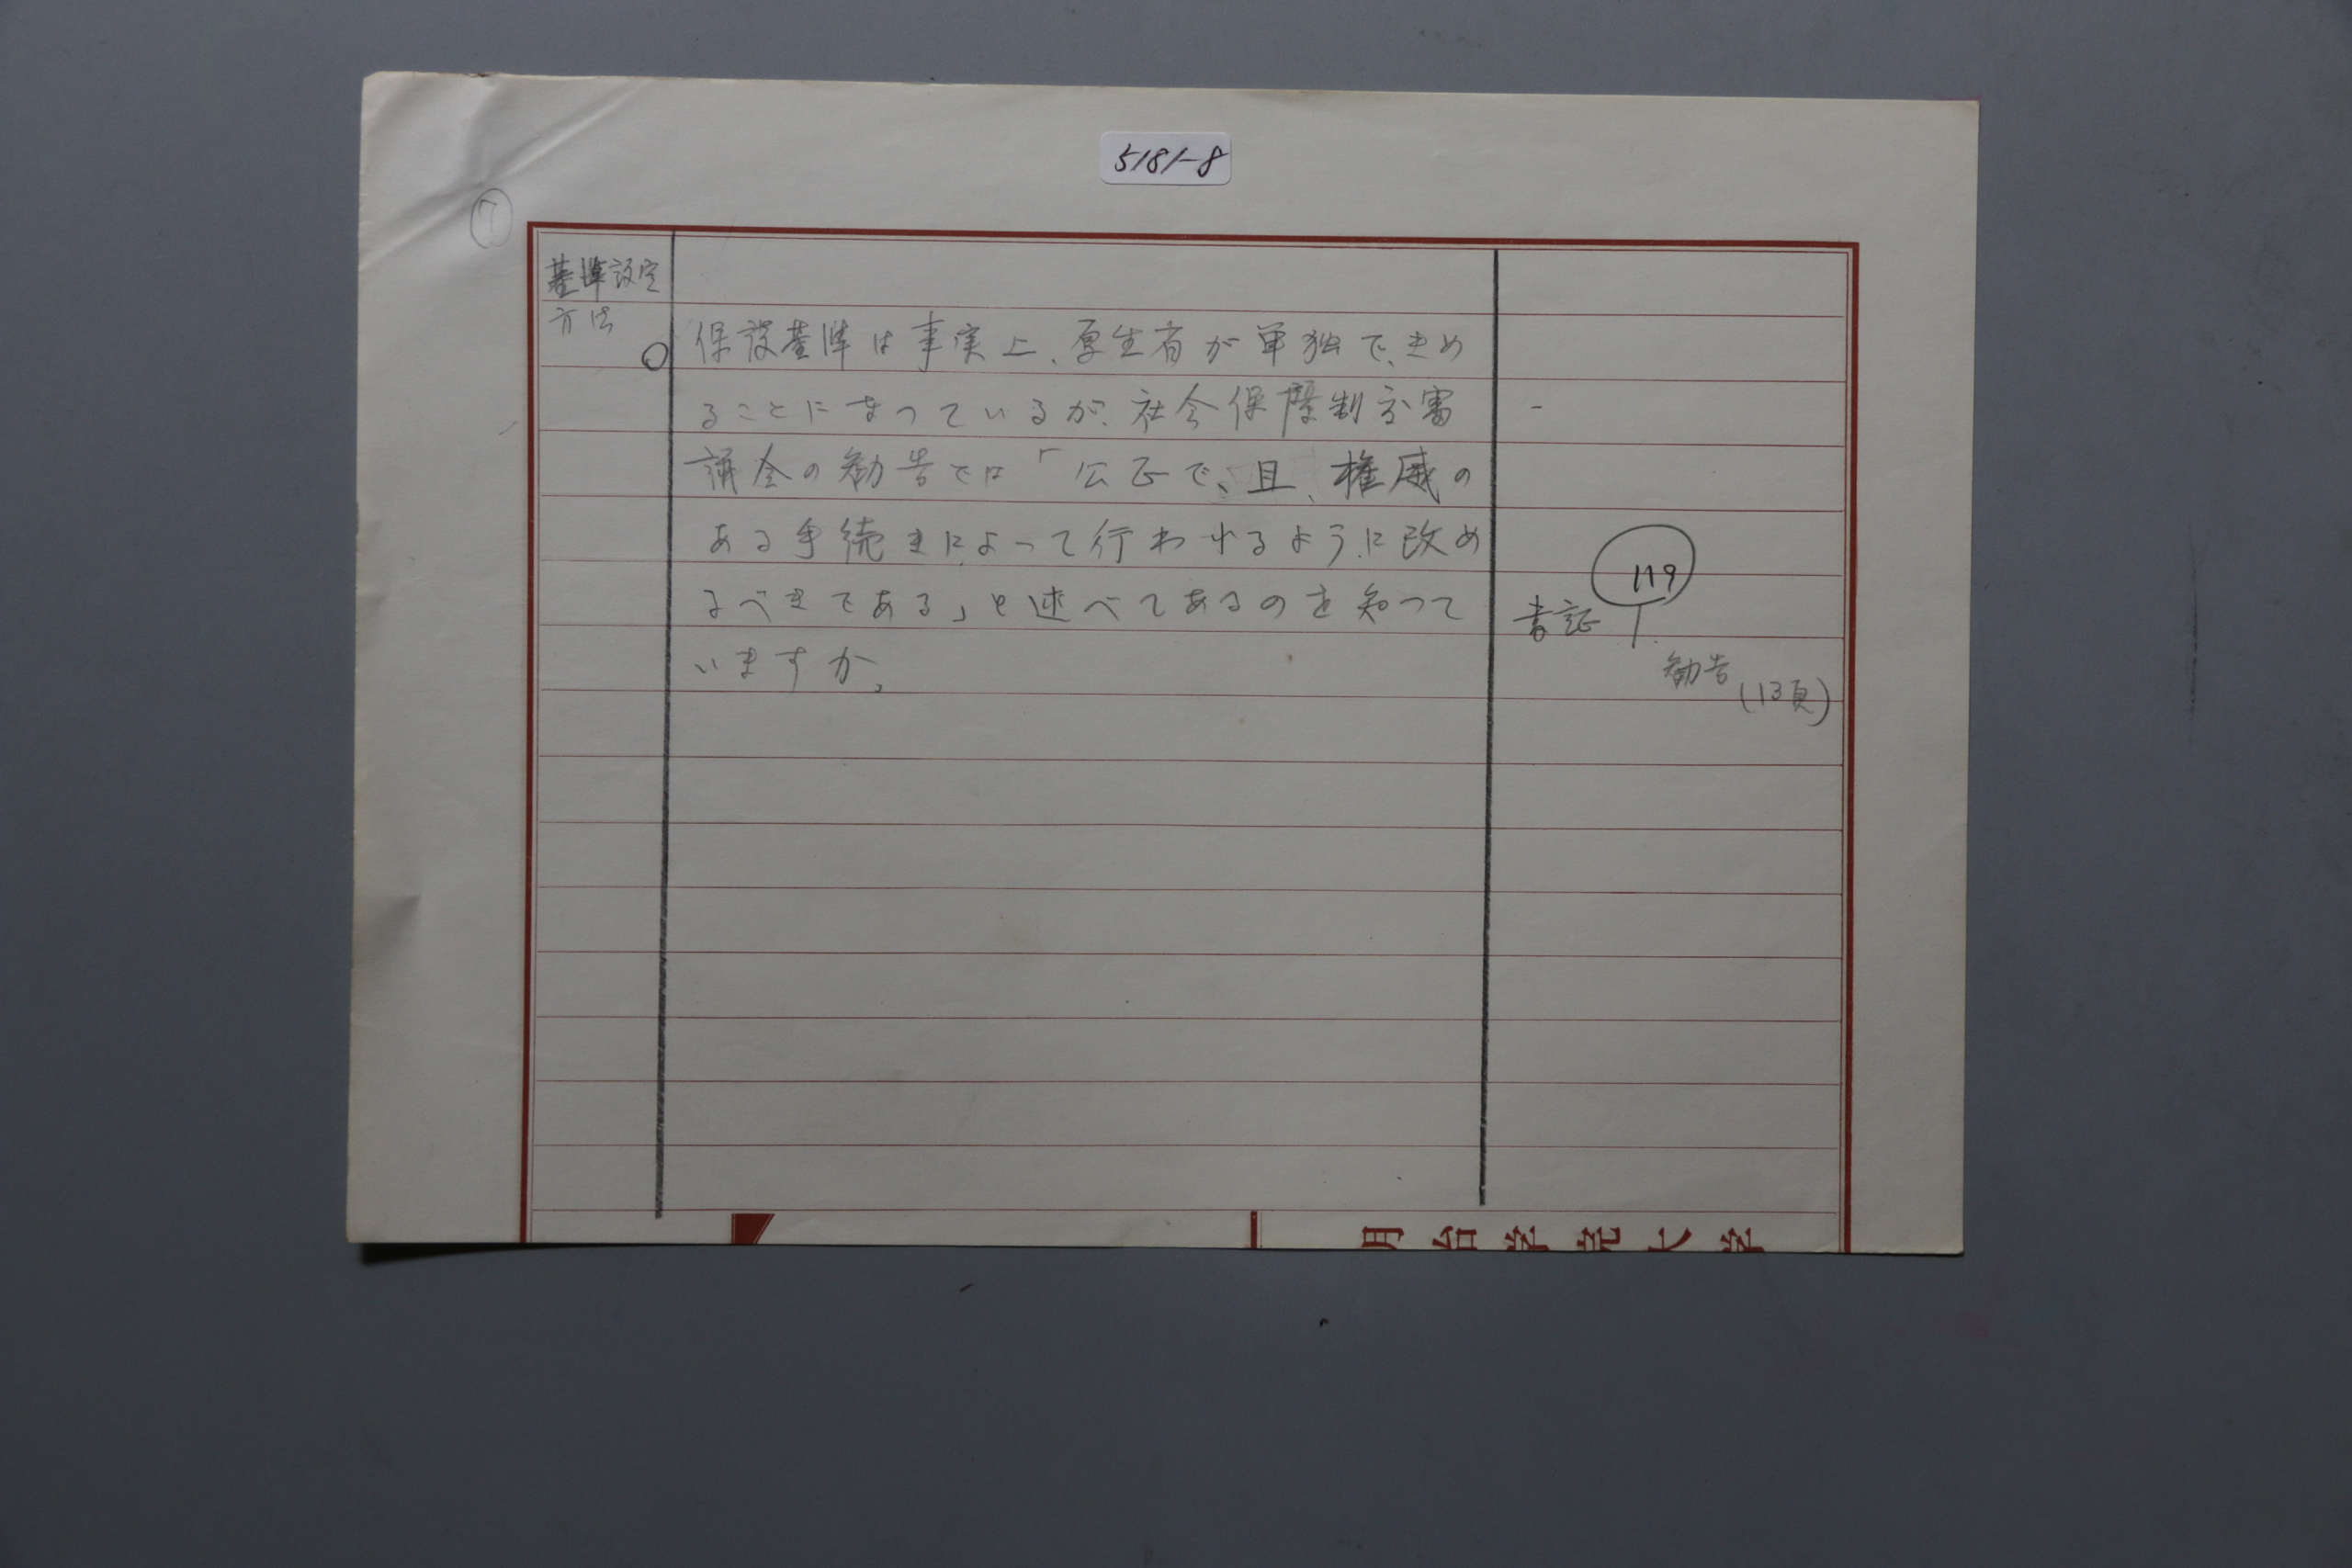 5181-8
⑦
基準設定
方法
○保護基準は事実上、厚生省が単独で、きめ
ることになっているが、社会保障制度審
議会の勧告では「公正で、且、権威の
ある手続きによって行われるように改め
るべきである」と述べてあるのを知って
いますか。
119
書証
勧告
(13頁)
明治学院大学